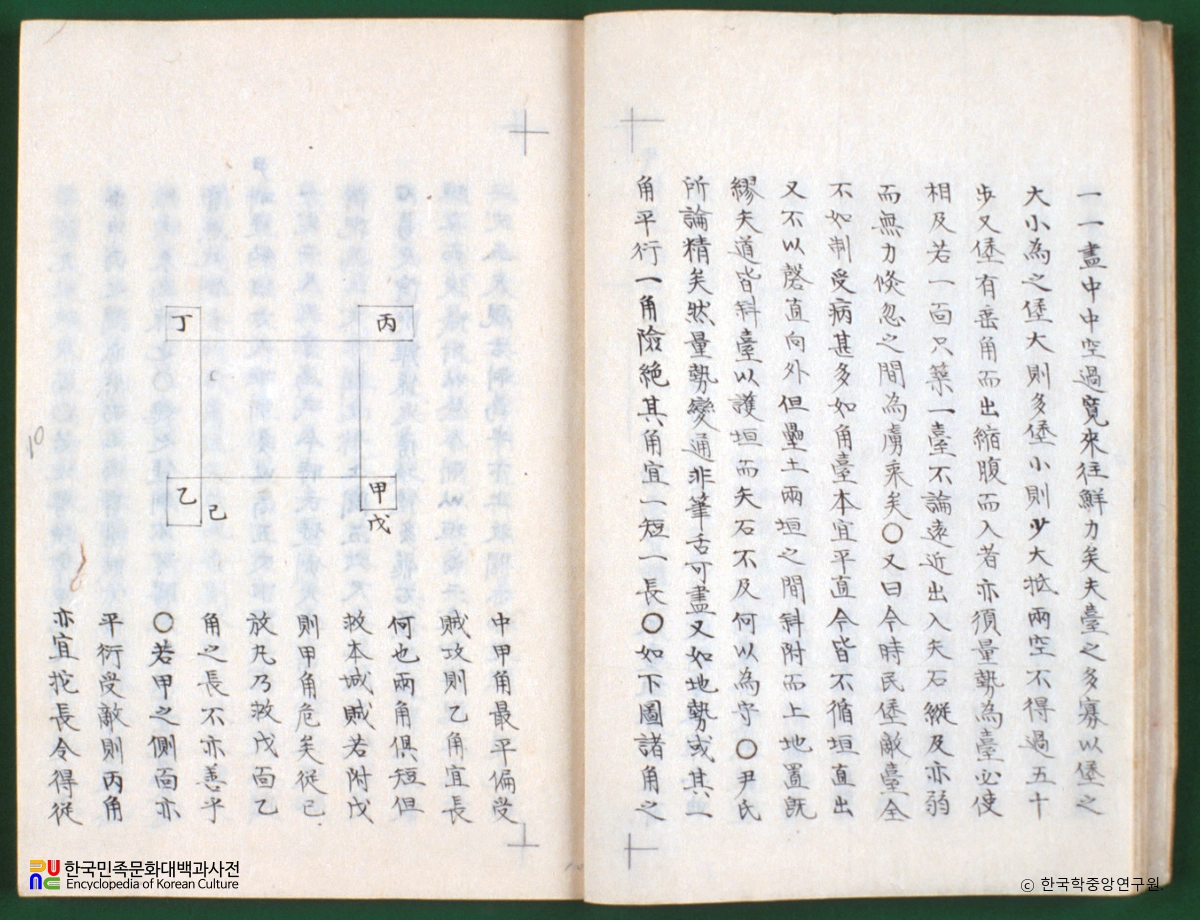 一一盡中中空過寬來往鮮力矣夫臺之多寡以堡之
大小為之堡大則多堡小則少大抵兩空不得過五十
步又堡有垂角而出縮腹而入者亦須量勢為臺必使
相及若一面只築一臺不論遠近出入夫石縱及亦弱
而無力倏忽之間為虜乘矣〇又曰今時民堡敵臺全
不如制受病甚多如角臺本宜平直今皆不循垣直出
又不以磬直向外但壘土兩垣之間斜附而上地置旣
繆夫道皆斜臺以護垣而矢石不及何以為守〇尹氏
所論精矣然量勢變通非筆舌可盡又如地勢或其一
角平行一角險絶其角宜一短一長〇如下圖諸角之
丙
丁
甲
戊
乙
己
中甲角最平偏受
賊攻則乙角宜長
何也兩角俱短但
救本城賊若附戊
則甲角危矣從己
放丸乃救戊面乙
角之長不亦善乎
〇若甲之側面亦
平衍受敵則丙角
亦宜挖長令得從
10
한국민족문화대백과사전
Encyclopedia of Korean Culture
ⓒ 한국학중앙연구원